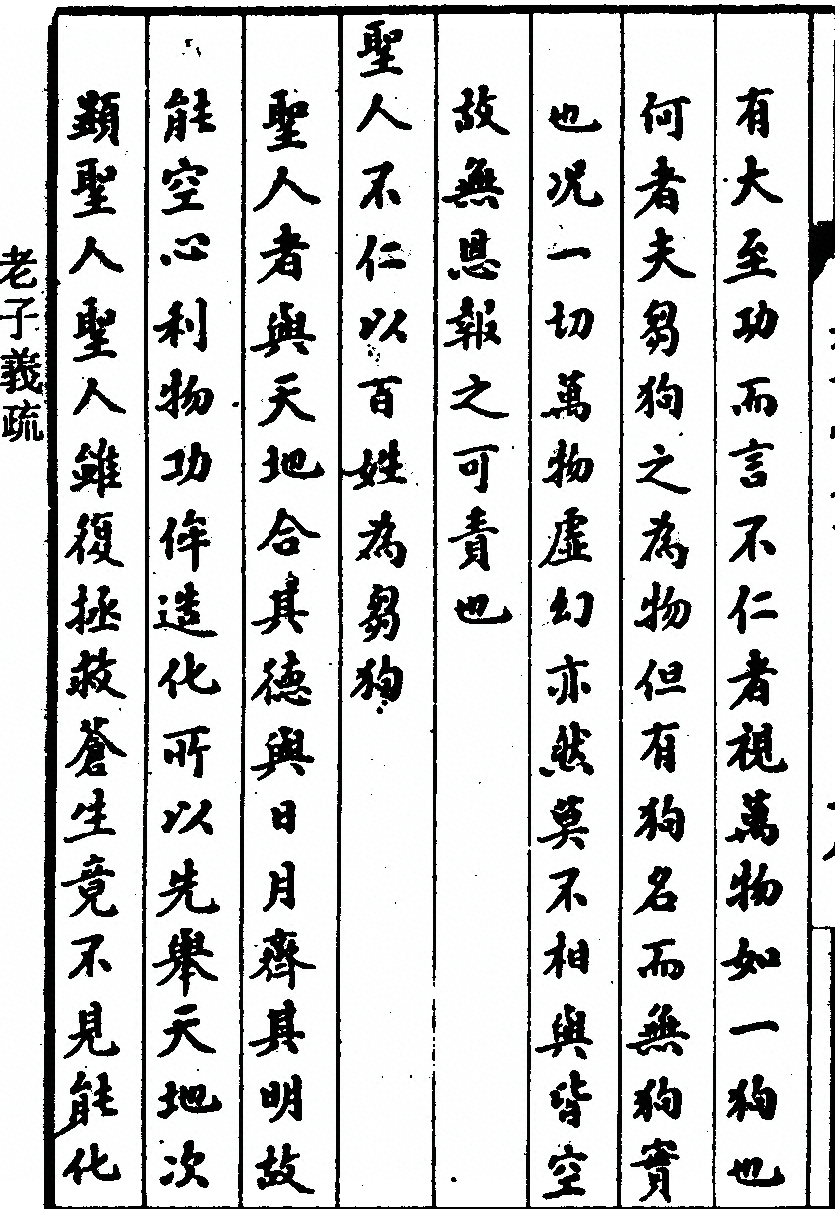 有大至功而言不仁者視萬物如一狗也
何者夫芻狗之為物但有狗名而無狗實
也况一切萬物虛幻亦然莫不相與皆空
故無恩報之可責也
聖人不仁以百姓為芻狗
聖人者與天地合其德與日月齊其明故
能空心利物功侔造化所以先舉天地次
顯聖人聖人雖復拯救蒼生竟不見能化
老子義疏